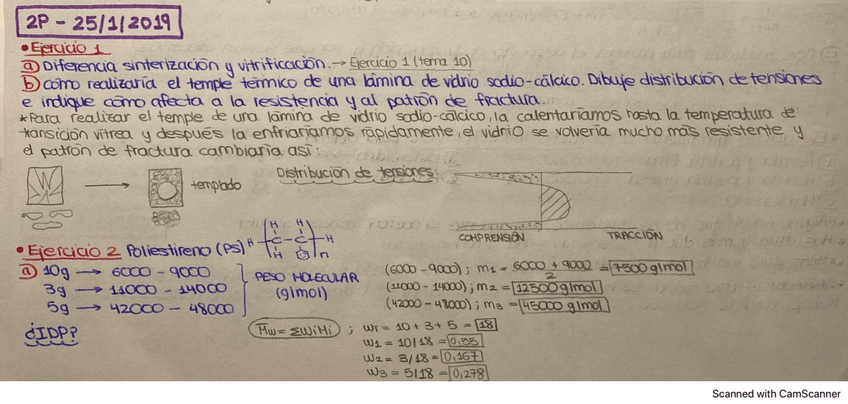 2P - 25/1/2019
• Ejercicio 1
a) Diferencia sinterización y vitrificación. → Ejercicio 1 (tema 10)
b) cómo realizaría el temple térmico de una lámina de vidrio sodio-cálcico. Dibuje distribución de tensiones
e indique cómo afecta a la resistencia y al patrón de fractura.
*Para realizar el temple de una lámina de vidrio sodio-cálcico, la calentaríamos hasta la temperatura de
transición vítrea y después la enfriaríamos rápidamente, el vidrio se volvería mucho más resistente y
el patrón de fractura cambiaría así:
templado
Distribución de tensiones:
COMPRENSIÓN TRACCIÓN
• Ejercicio 2 Poliestireno (PS)
H H H
C - C H
H n
a) 10g → 6000 - 9000
3g → 11000 - 14000
5g → 42000 - 48000
PESO MOLECULAR
(g/mol)
(6000 - 9000); m1 = 6000 + 9000 / 2 = 7500 g/mol
(11000 - 14000); m2 = 12500 g/mol
(42000 - 48000); m3 = 45000 g/mol
¿IDP?
Mw = ΣWiMi ; WT = 10 + 3 + 5 = 18
W1 = 10/18 = 0,55
W2 = 3/18 = 0,167
W3 = 5/18 = 0,278
Scanned with CamScanner